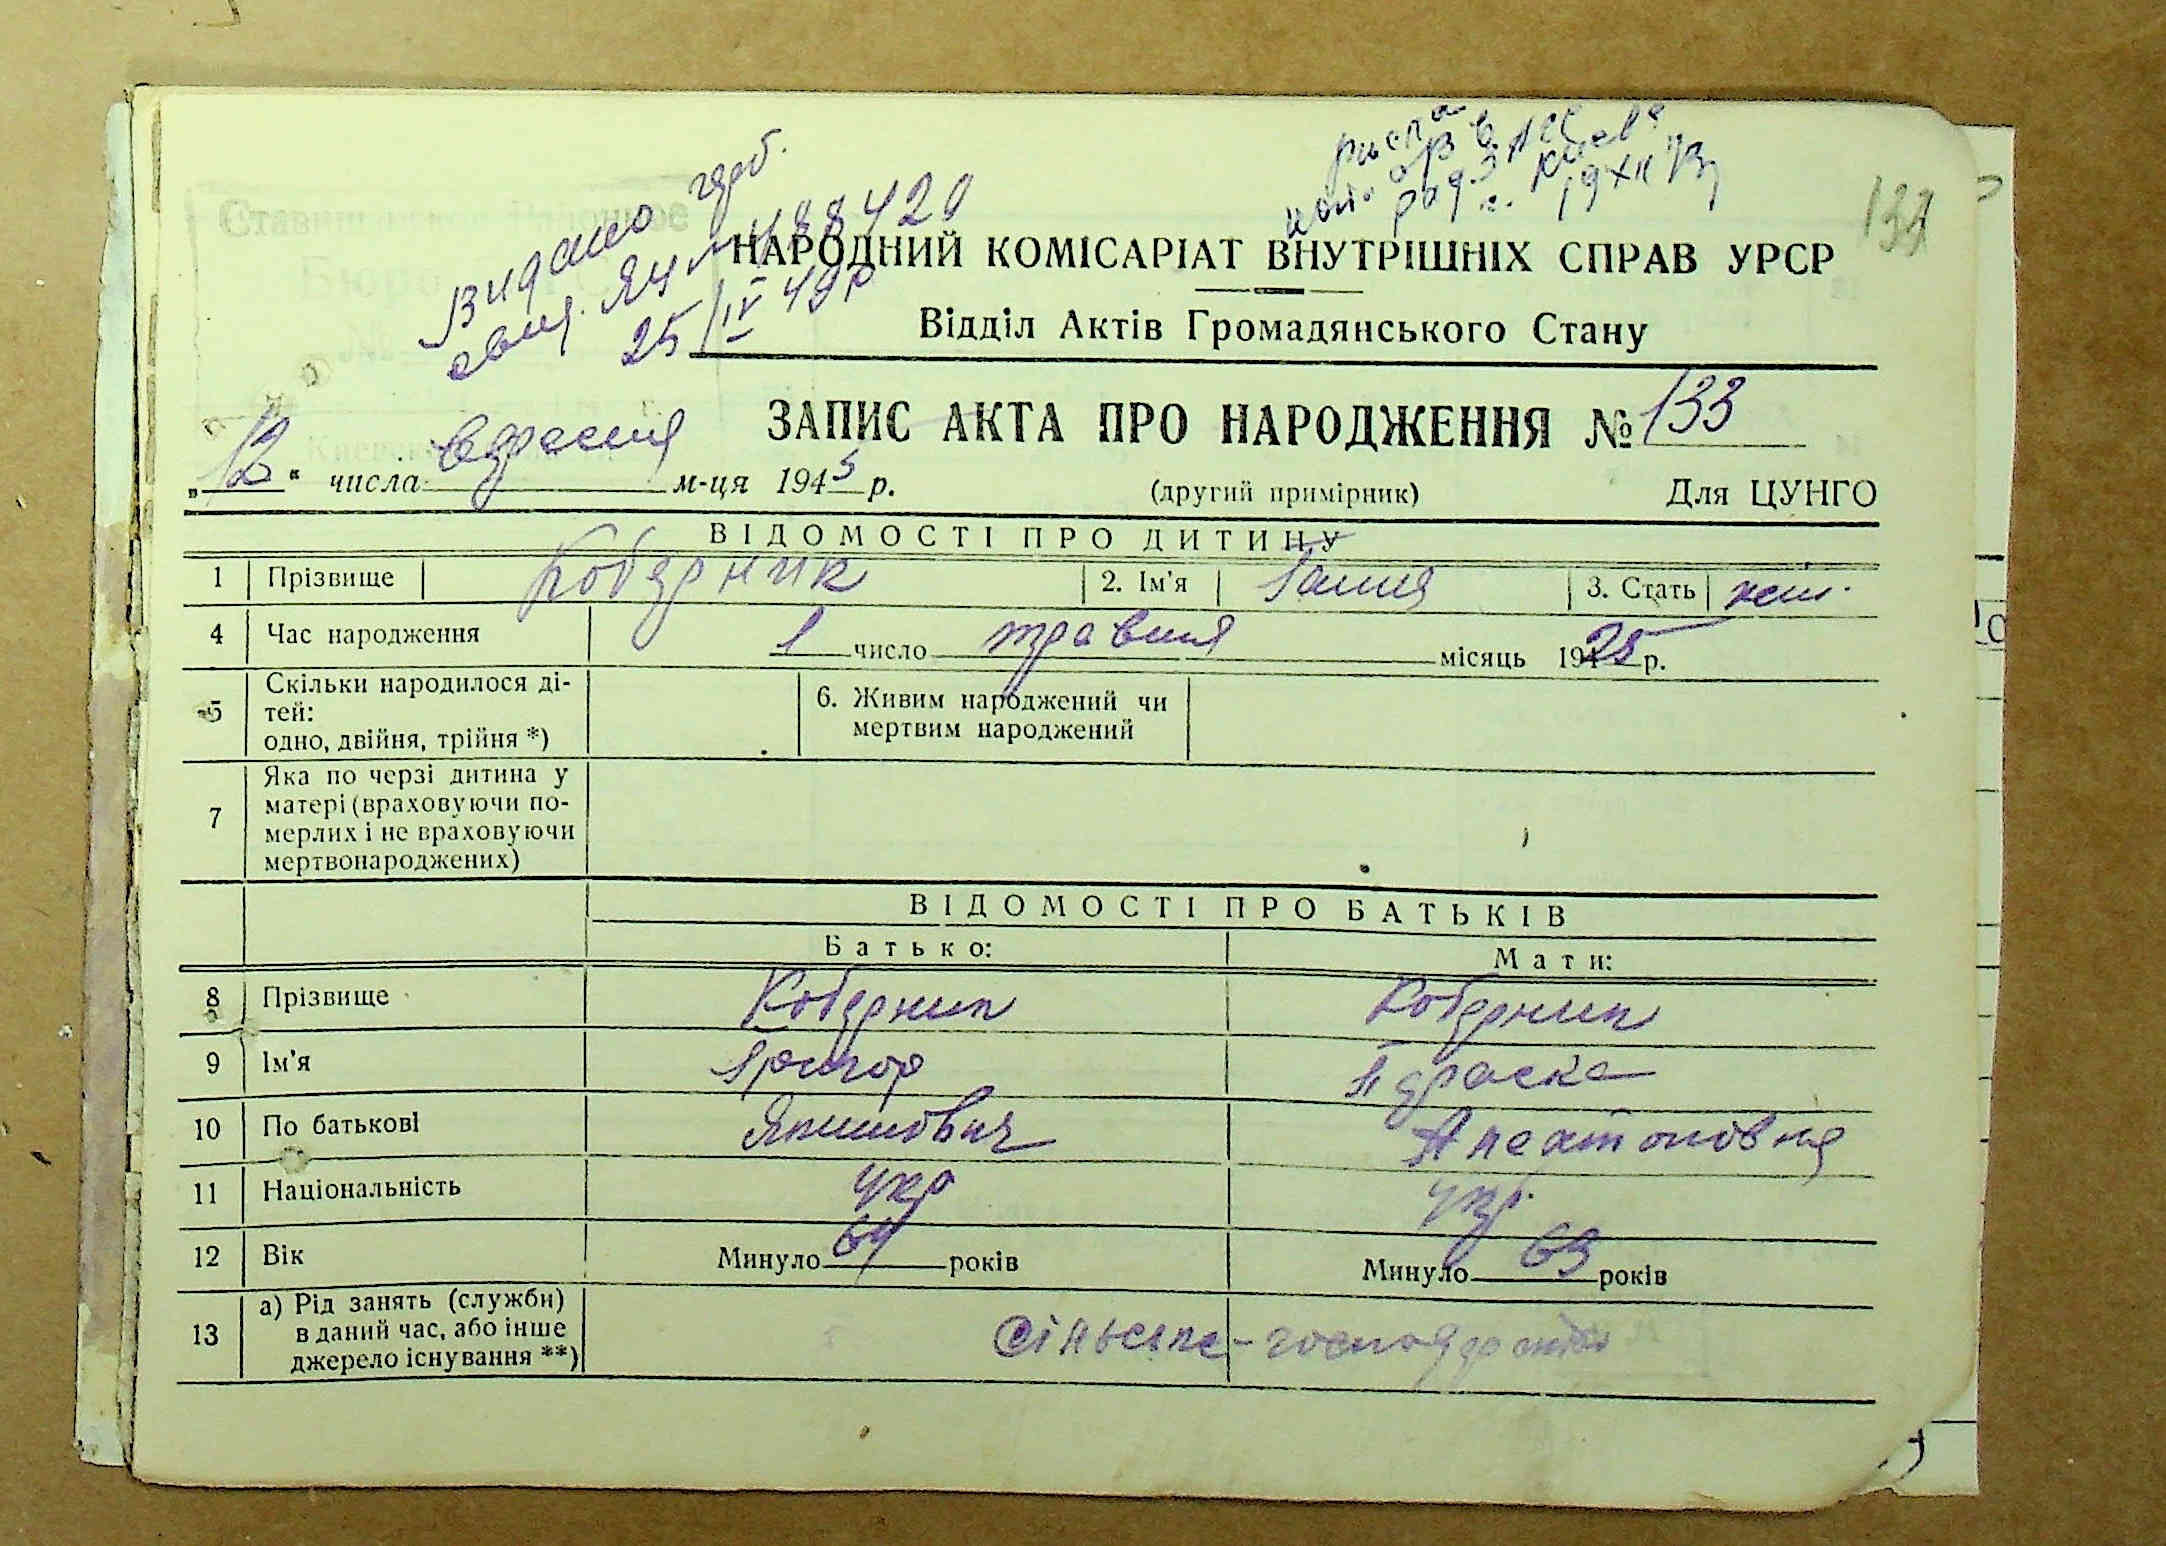 Видано
25/IV 49р
137
НАРОДНИЙ КОМІСАРІАТ ВНУТРІШНІХ СПРАВ УРСР
Відділ Актів Громадянського Стану
ЗАПИС АКТА ПРО НАРОДЖЕННЯ № 133
„12“ числа вересня м-ця 1945 р. (другий примірник) Для ЦУНГО
ВІДОМОСТІ ПРО ДИТИНУ
1 Прізвище Коберник 2. Ім'я Ганна 3. Стать жін.
4 Час народження 1 число травня місяць 1925 р.
5 Скільки народилося ді-
тей:
одно, двійня, трійня *)
6. Живим народжений чи
мертвим народжений
7 Яка по черзі дитина у
матері (враховуючи по-
мерлих і не враховуючи
мертвонароджених)
ВІДОМОСТІ ПРО БАТЬКІВ
Батько: Мати:
8 Прізвище Коберник Коберник
9 Ім'я Григор Параска
10 По батькові
11 Національність укр укр.
12 Вік Минуло 64 років Минуло 63 років
13 а) Рід занять (служби)
в даний час, або інше
джерело існування **)